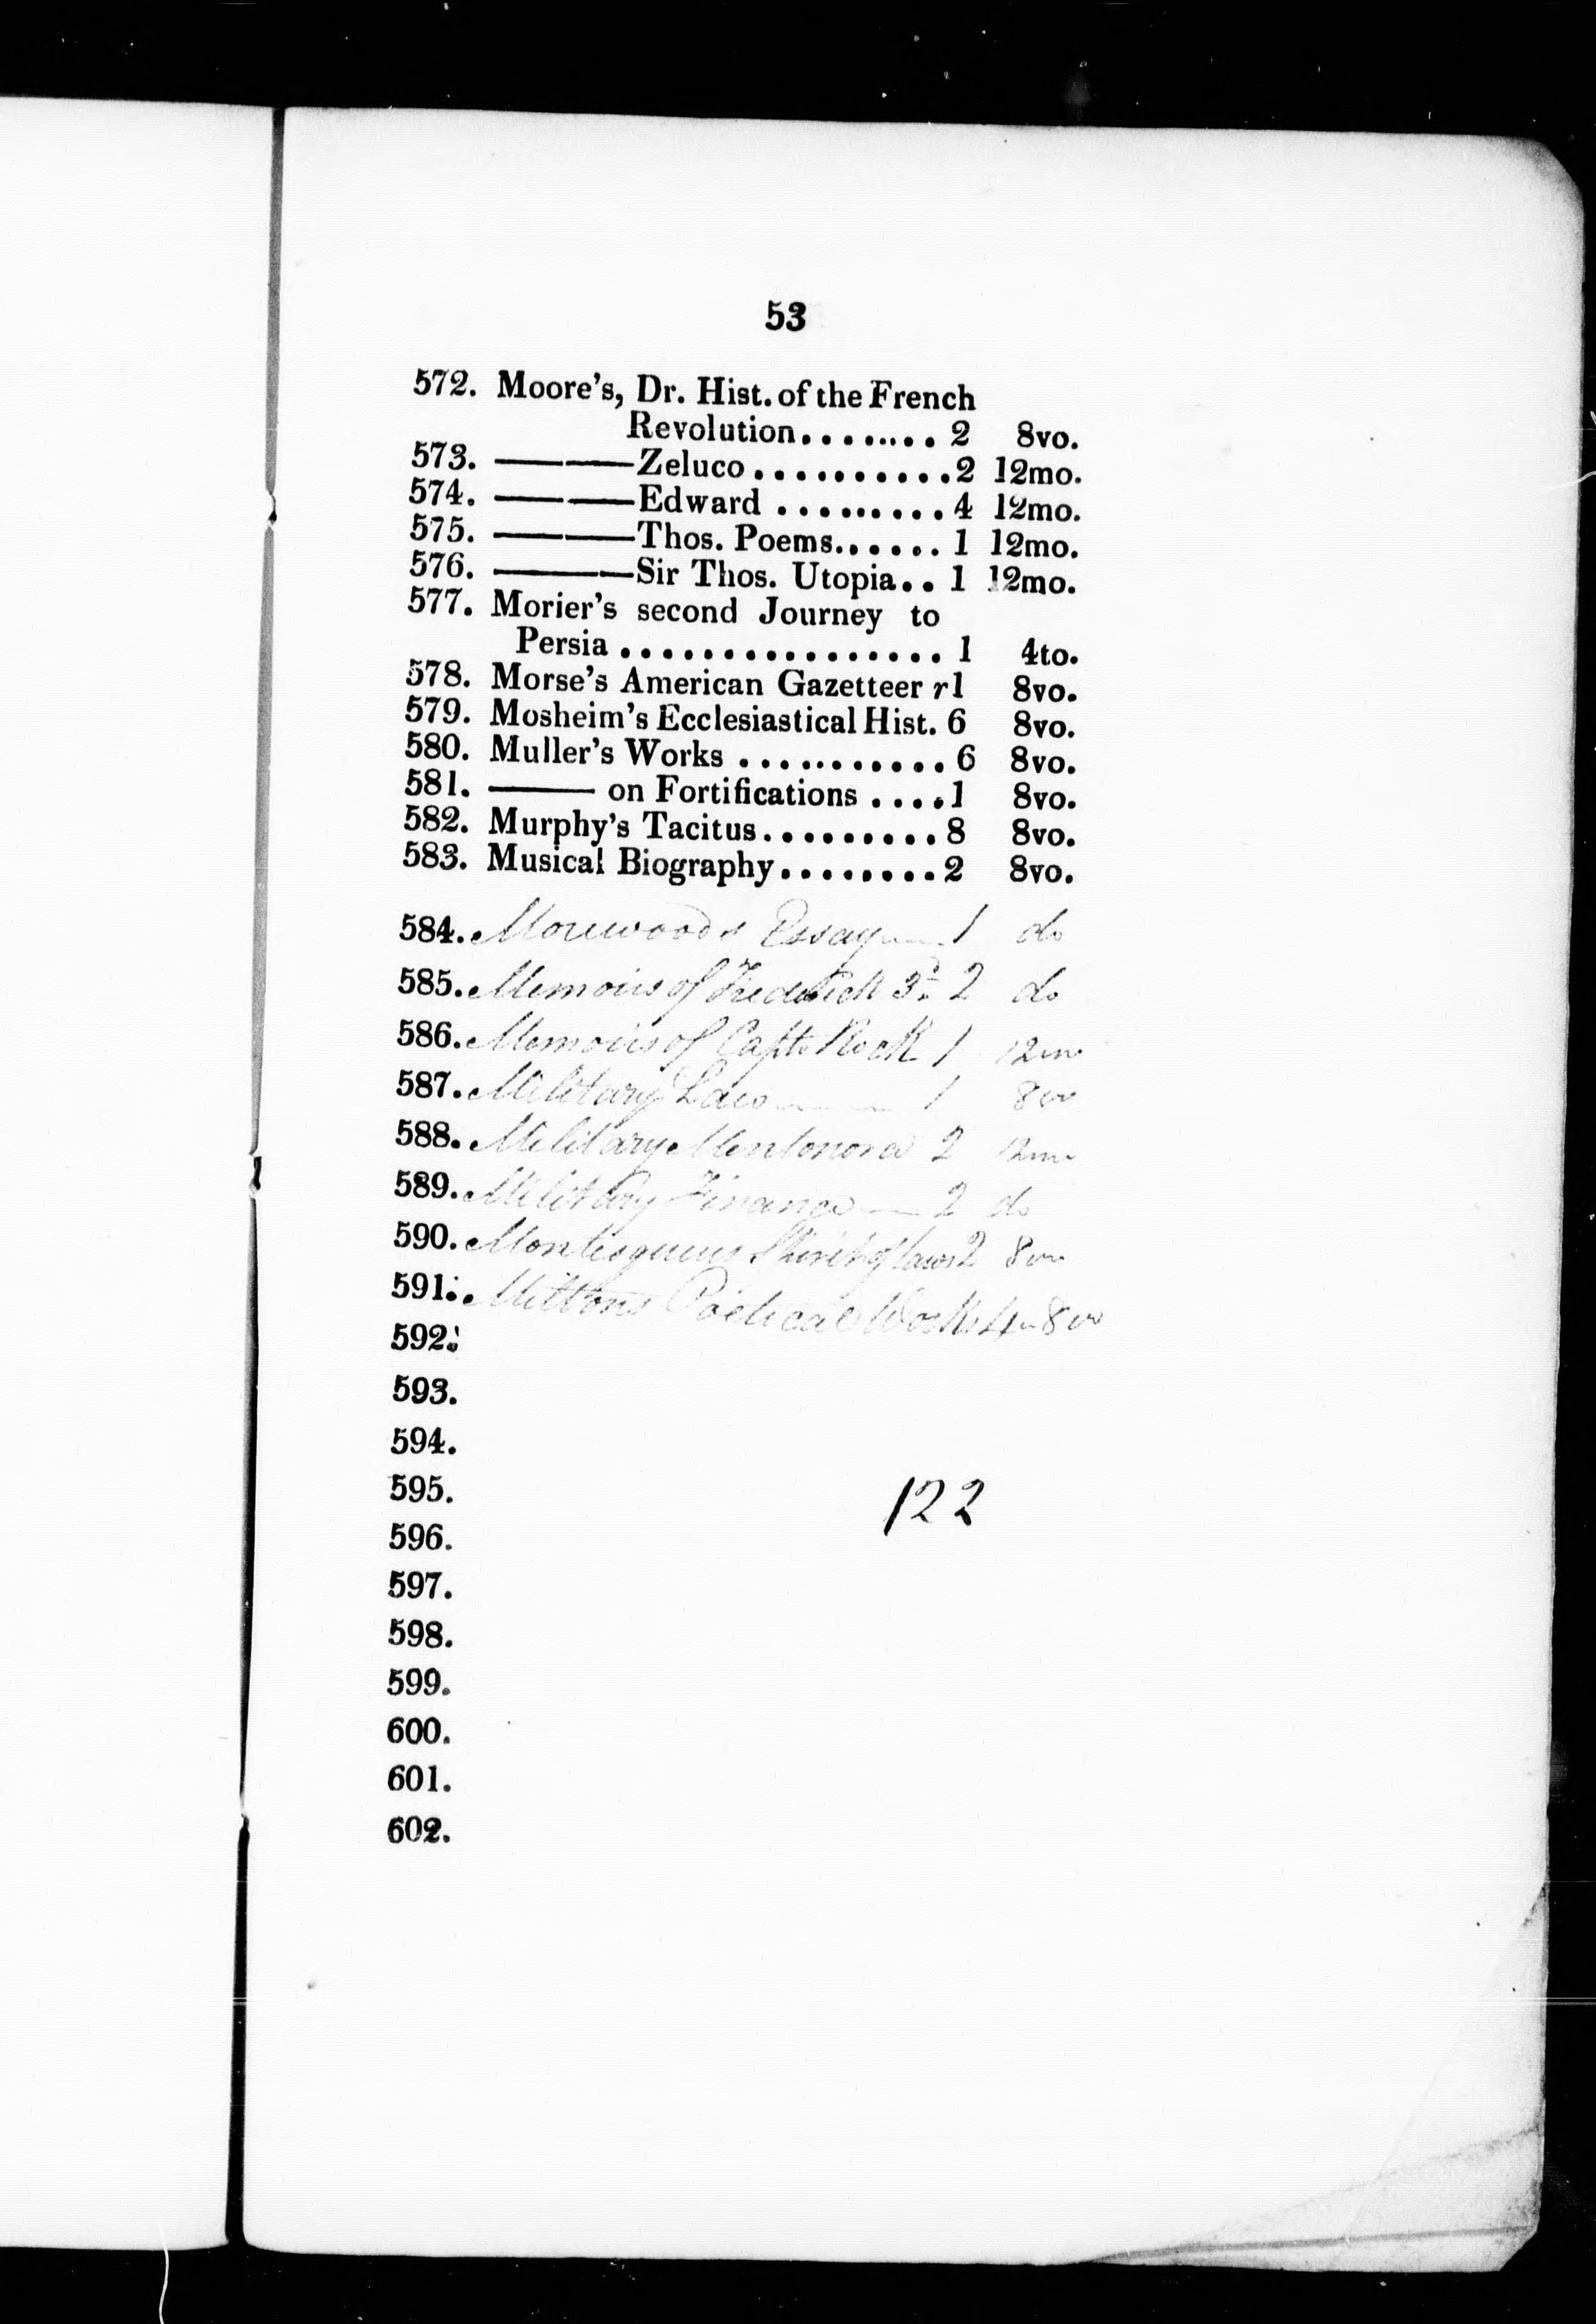 53
572. Moore's, Dr. Hist. of the French
Revolution........ 2 8vo.
573. ——— Zeluco..........2 12mo.
574. ——— Edward ......... 4 12mo.
575. ——— Thos. Poems...... 1 12mo.
576. ——— Sir Thos. Utopia.. 1 12mo.
577. Morier's second Journey to
Persia ................ 1 4to.
578. Morse's American Gazetteer r1 8vo.
579. Mosheim's Ecclesiastical Hist. 6 8vo.
580. Muller's Works ........... 6 8vo.
581. ——— on Fortifications ....1 8vo.
582. Murphy's Tacitus......... 8 8vo.
583. Musical Biography........ 2 8vo.
584. Morewoods Essay 1 do
585. Memoirs of Frederick 3d. 2 do
586. Memoirs of Capt. Rock 1 12mo
587. Military Law 1 8vo
588. Military 2 12mo
589. Military Finance 2 do
590. Montesquieus Spirit of laws 2 8vo
591. Miltons Poetical Works 4 8vo
592.
593.
594.
595.
122
596.
597.
598.
599.
600.
601.
602.